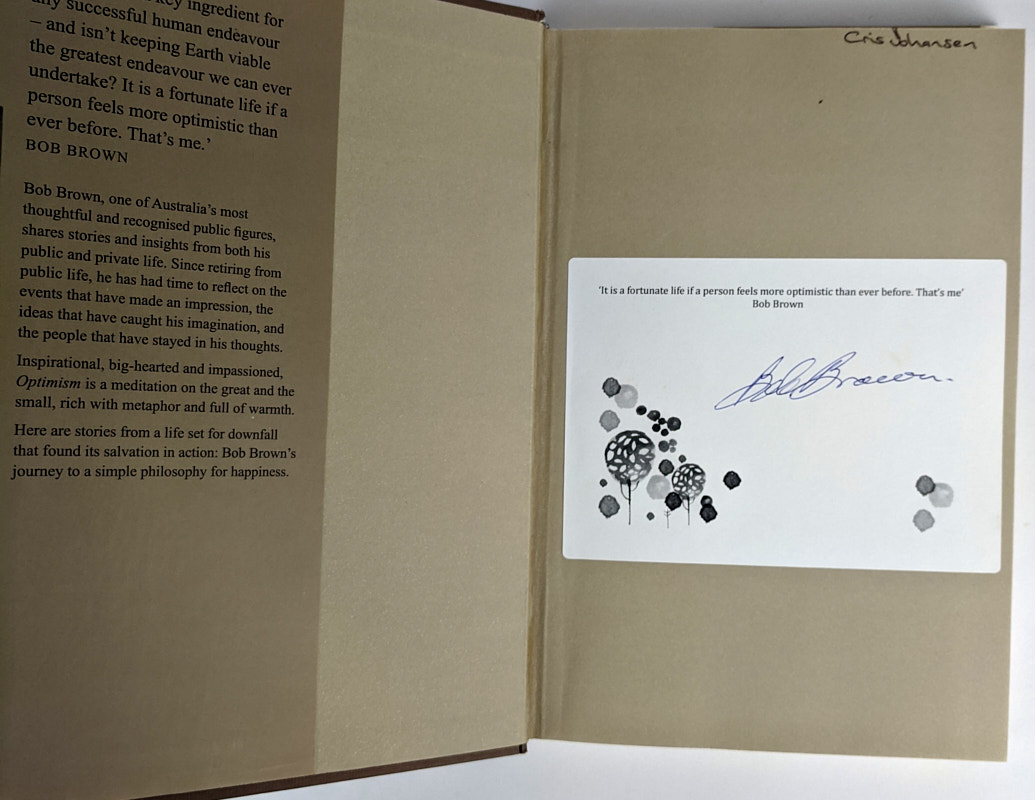 key ingredient for
any successful human endeavour
– and isn't keeping Earth viable
the greatest endeavour we can ever
undertake? It is a fortunate life if a
person feels more optimistic than
ever before. That's me.'
BOB BROWN
Bob Brown, one of Australia's most
thoughtful and recognised public figures,
shares stories and insights from both his
public and private life. Since retiring from
public life, he has had time to reflect on the
events that have made an impression, the
ideas that have caught his imagination, and
the people that have stayed in his thoughts.
Inspirational, big-hearted and impassioned,
Optimism is a meditation on the great and the
small, rich with metaphor and full of warmth.
Here are stories from a life set for downfall
that found its salvation in action: Bob Brown's
journey to a simple philosophy for happiness.
Cris Johansen
'It is a fortunate life if a person feels more optimistic than ever before. That's me'
Bob Brown
Bob Brown.